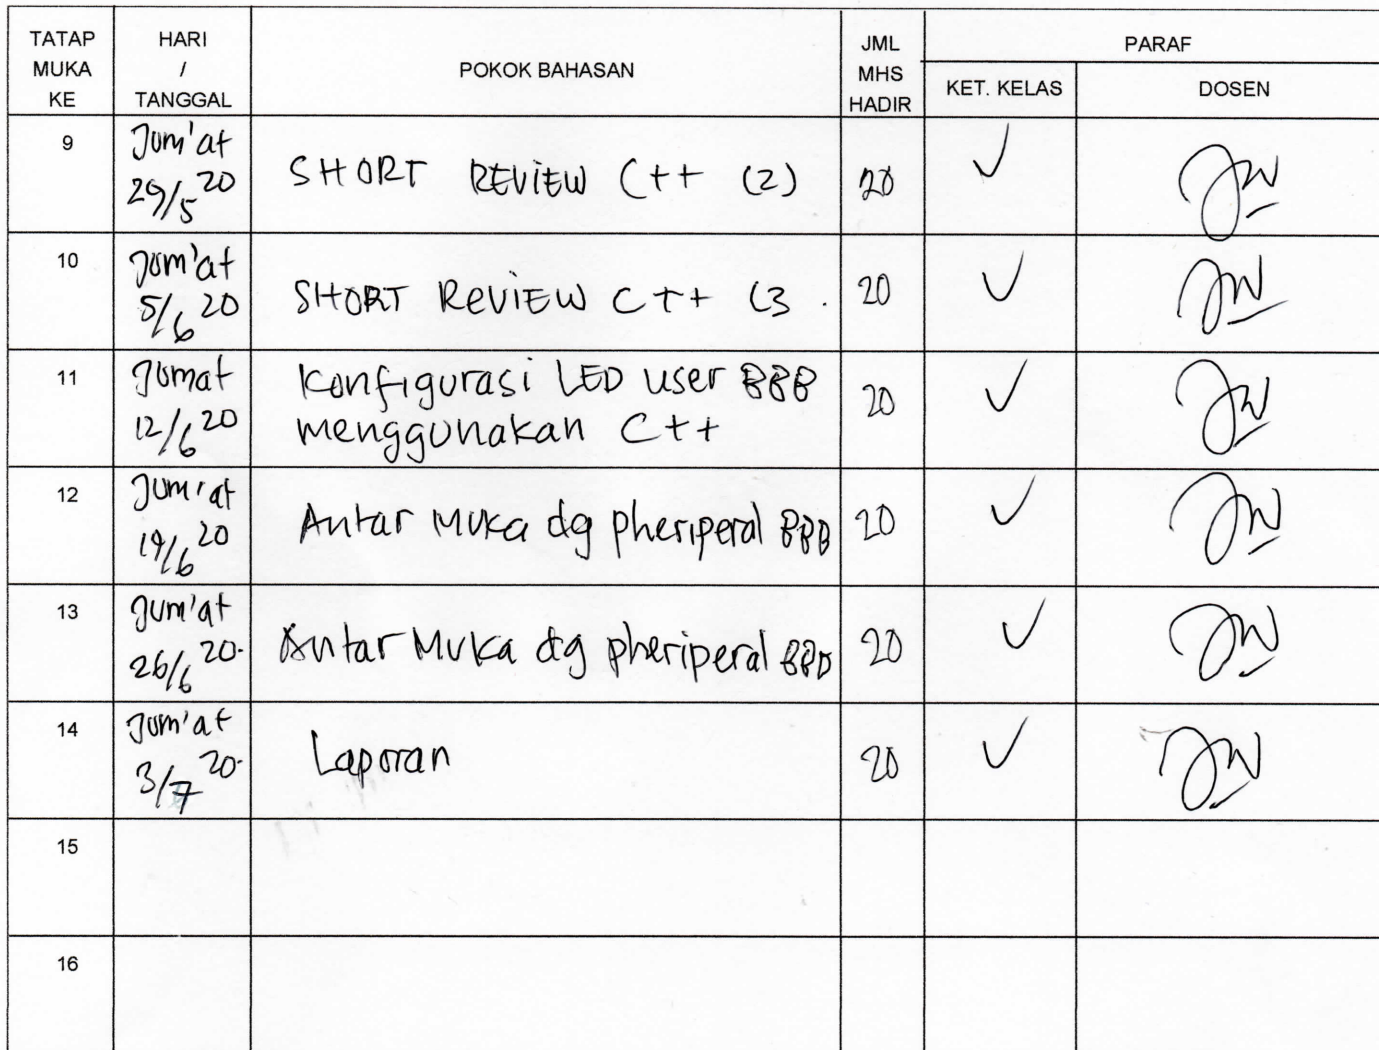 TATAP MUKA KE
HARI / TANGGAL
POKOK BAHASAN
JML MHS HADIR
PARAF
KET. KELAS
DOSEN
9
Jum'at
29/5 20
SHORT REVIEW C++ (2)
20
10
Jum'at
5/6 20
SHORT REVIEW C++ (3
20
11
Jumat
12/6 20
Konfigurasi LED user BBB
menggunakan C++
20
12
Jum'at
19/6 20
Antar Muka dg pheriperal BBB
20
13
Jum'at
26/6 20
Antar Muka dg pheriperal BBB
20
14
Jum'at
3/7 20
Laporan
20
15
16